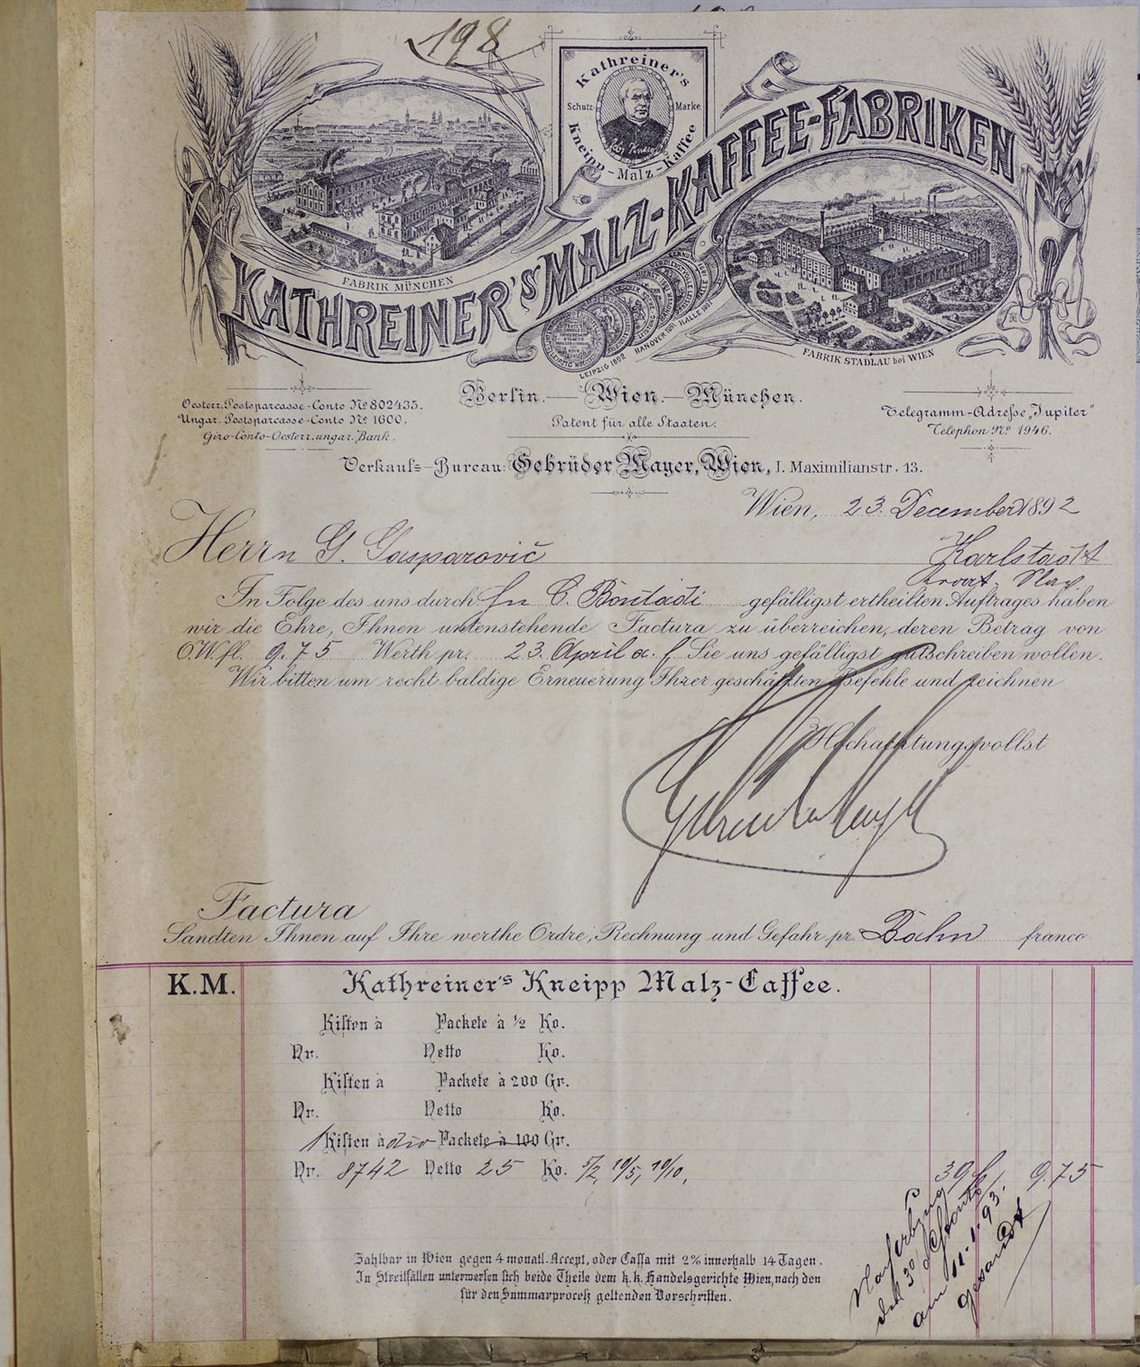 198
Kathreiner's
Schutz Marke
Kneipp-Malz-Kaffee
KATHREINER'S MALZ-KAFFEE-FABRIKEN
FABRIK MÜNCHEN
LEIPZIG 1892 HANNOVER 1891 HALLE
FABRIK STADLAU bei WIEN
Berlin. — Wien. — München.
Patent für alle Staaten.
Oesterr. Postsparcasse-Conto No 802435.
Ungar. Postsparcasse-Conto No 1600.
Giro-Conto-Oesterr. ungar. Bank.
Telegramm-Adreſse „Jupiter"
Telephon No 1946.
Verkaufs-Bureau: Gebrüder Mayer, Wien, I. Maximilianstr. 13.
Wien, 23. December 1892
Herrn G. Gasparovič Karlstadt
Kroat. Slav.
In Folge des uns durch Hn C. Bontadi gefälligst ertheilten Auftrages haben
wir die Ehre, Ihnen untenstehende Factura zu überreichen, deren Betrag von
Ö.W.fl. 9.75 Werth pr. 23. April a. f. Sie uns gefälligst gutschreiben wollen.
Wir bitten um recht baldige Erneuerung Ihrer geschätzten Befehle und zeichnen
Hochachtungsvollst
Factura
Sandten Ihnen auf Ihre werthe Ordre, Rechnung und Gefahr pr. Bahn franco
K.M. Kathreiner's Kneipp Malz-Caffee.
Kiſten à Packete à ½ Ko.
Nr. Netto Ko.
Kiſten à Packete à 200 Gr.
Nr. Netto Ko.
1 Kiſten à div Packete à 100 Gr.
Nr. 8742 Netto 25 Ko. 5/2, 10/5, 10/10, 39 f 9.75
Zahlbar in Wien gegen 4 monatl. Accept, oder Caſſa mit 2% innerhalb 14 Tagen.
In Streitfällen unterwerfen ſich beide Theile dem k. k. Handelsgerichte Wien, nach den
für den Summarproceß geltenden Vorschriften.
Nach Abzug
des 3% Sconto
am 11.1.93.
gesandt